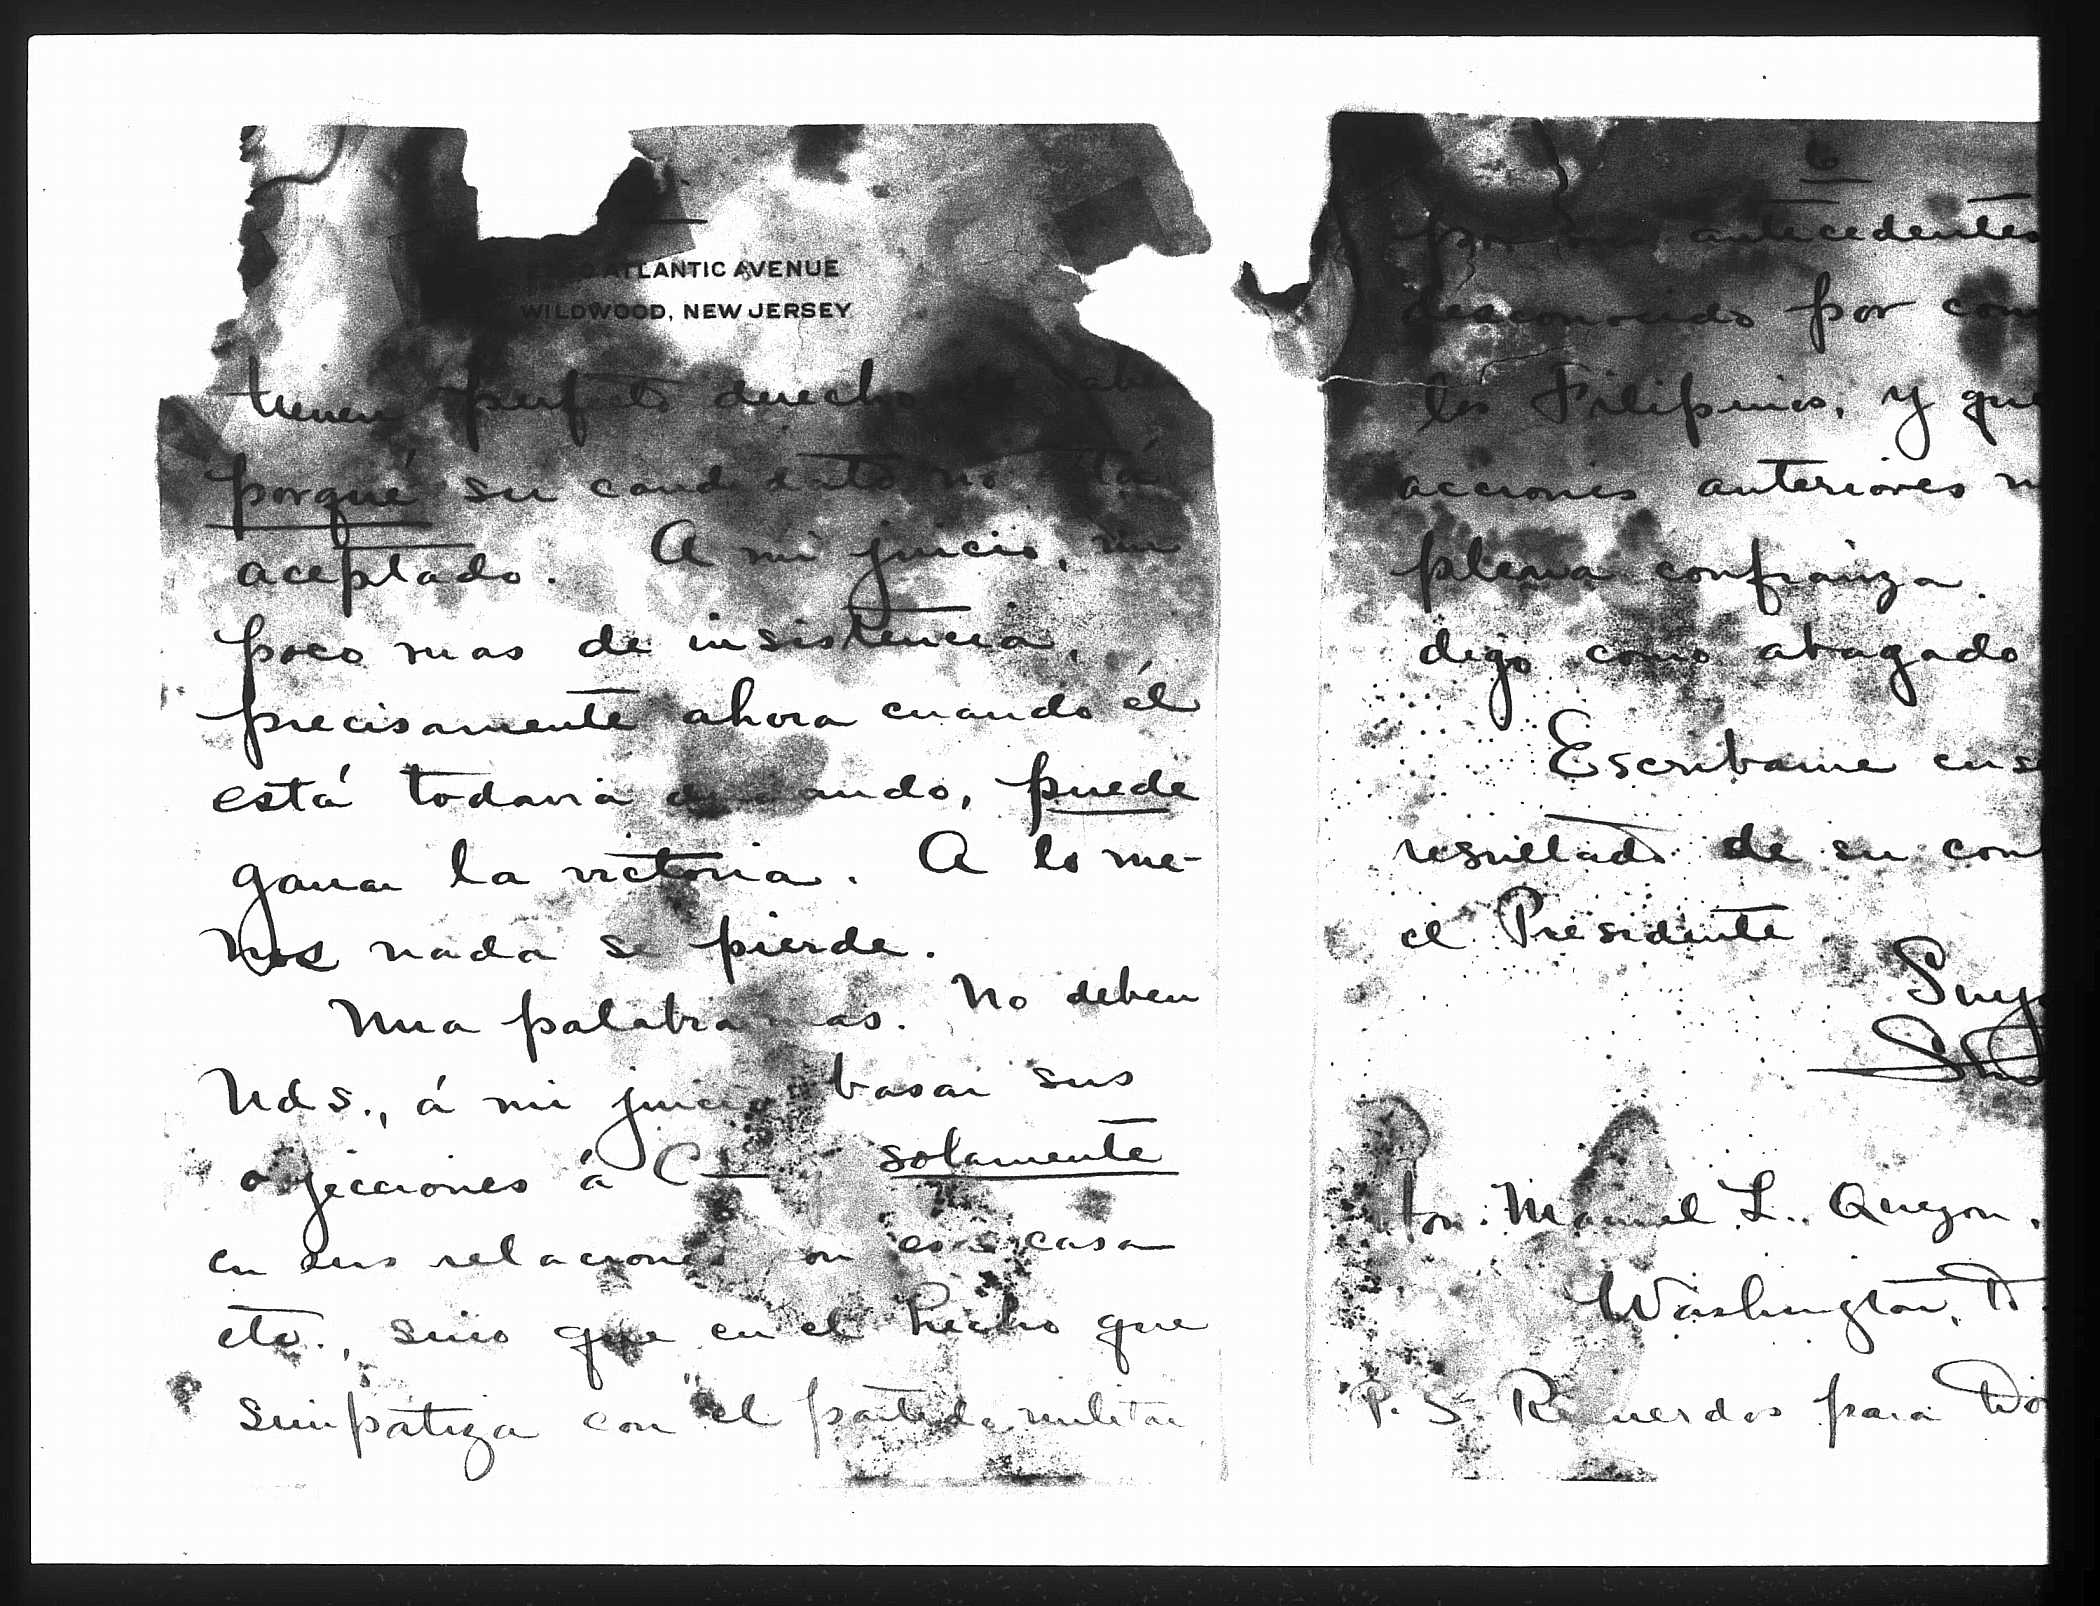 ATLANTIC AVENUE
WILDWOOD, NEW JERSEY
tienen perfecto derecho
porqué su candidato no
aceptado. A mi juicio, un
poco mas de insistencia,
precisamente ahora cuando él
está todavia ando, puede
ganar la victoria. A lo me-
nos nada se pierde.
Una palabra mas. No deben
Uds., á mi juicio basar sus
objecciones á C— solamente
en sus relaciones con esa casa
etc., sino que en el hecho que
simpatiza con el partido militar
6
por sus antecedentes
desconocido por com
los Filipinos, y que
acciones anteriores
plena confianza.
digo como abogado
Escribame
resultado de su con
el Presidente.
Suy
Hon. Manuel L. Quezon.
Washington, D.
P. S. Recuerdos para